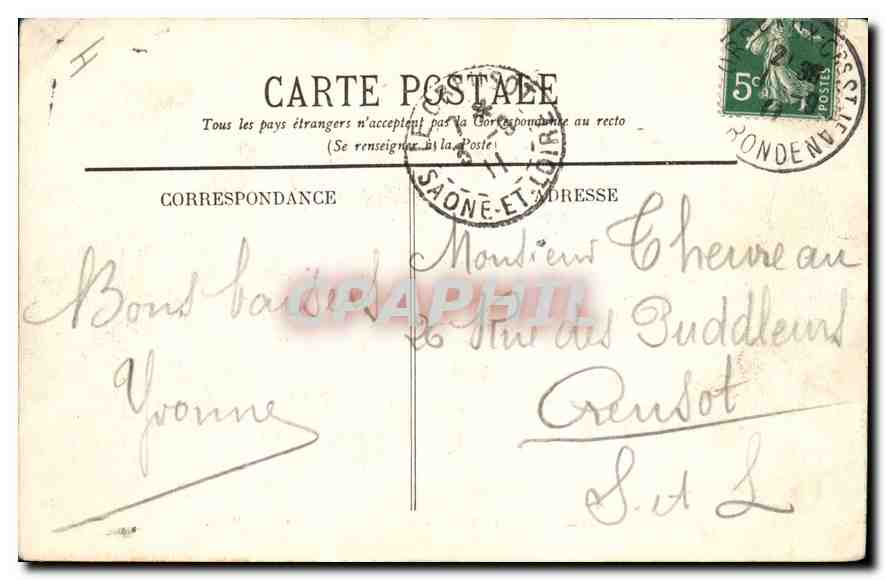 CARTE POSTALE
Tous les pays étrangers n'acceptent pas la Correspondance au recto
(Se renseigner à la Poste)
CORRESPONDANCE
ADRESSE
5c
POSTES
SAONE-ET-LOIRE
11
H
Bons baisers
Yvonne
Monsieur Thevreau
26 Rue des Puddleurs
Creusot
S. et L
CPAPHIL